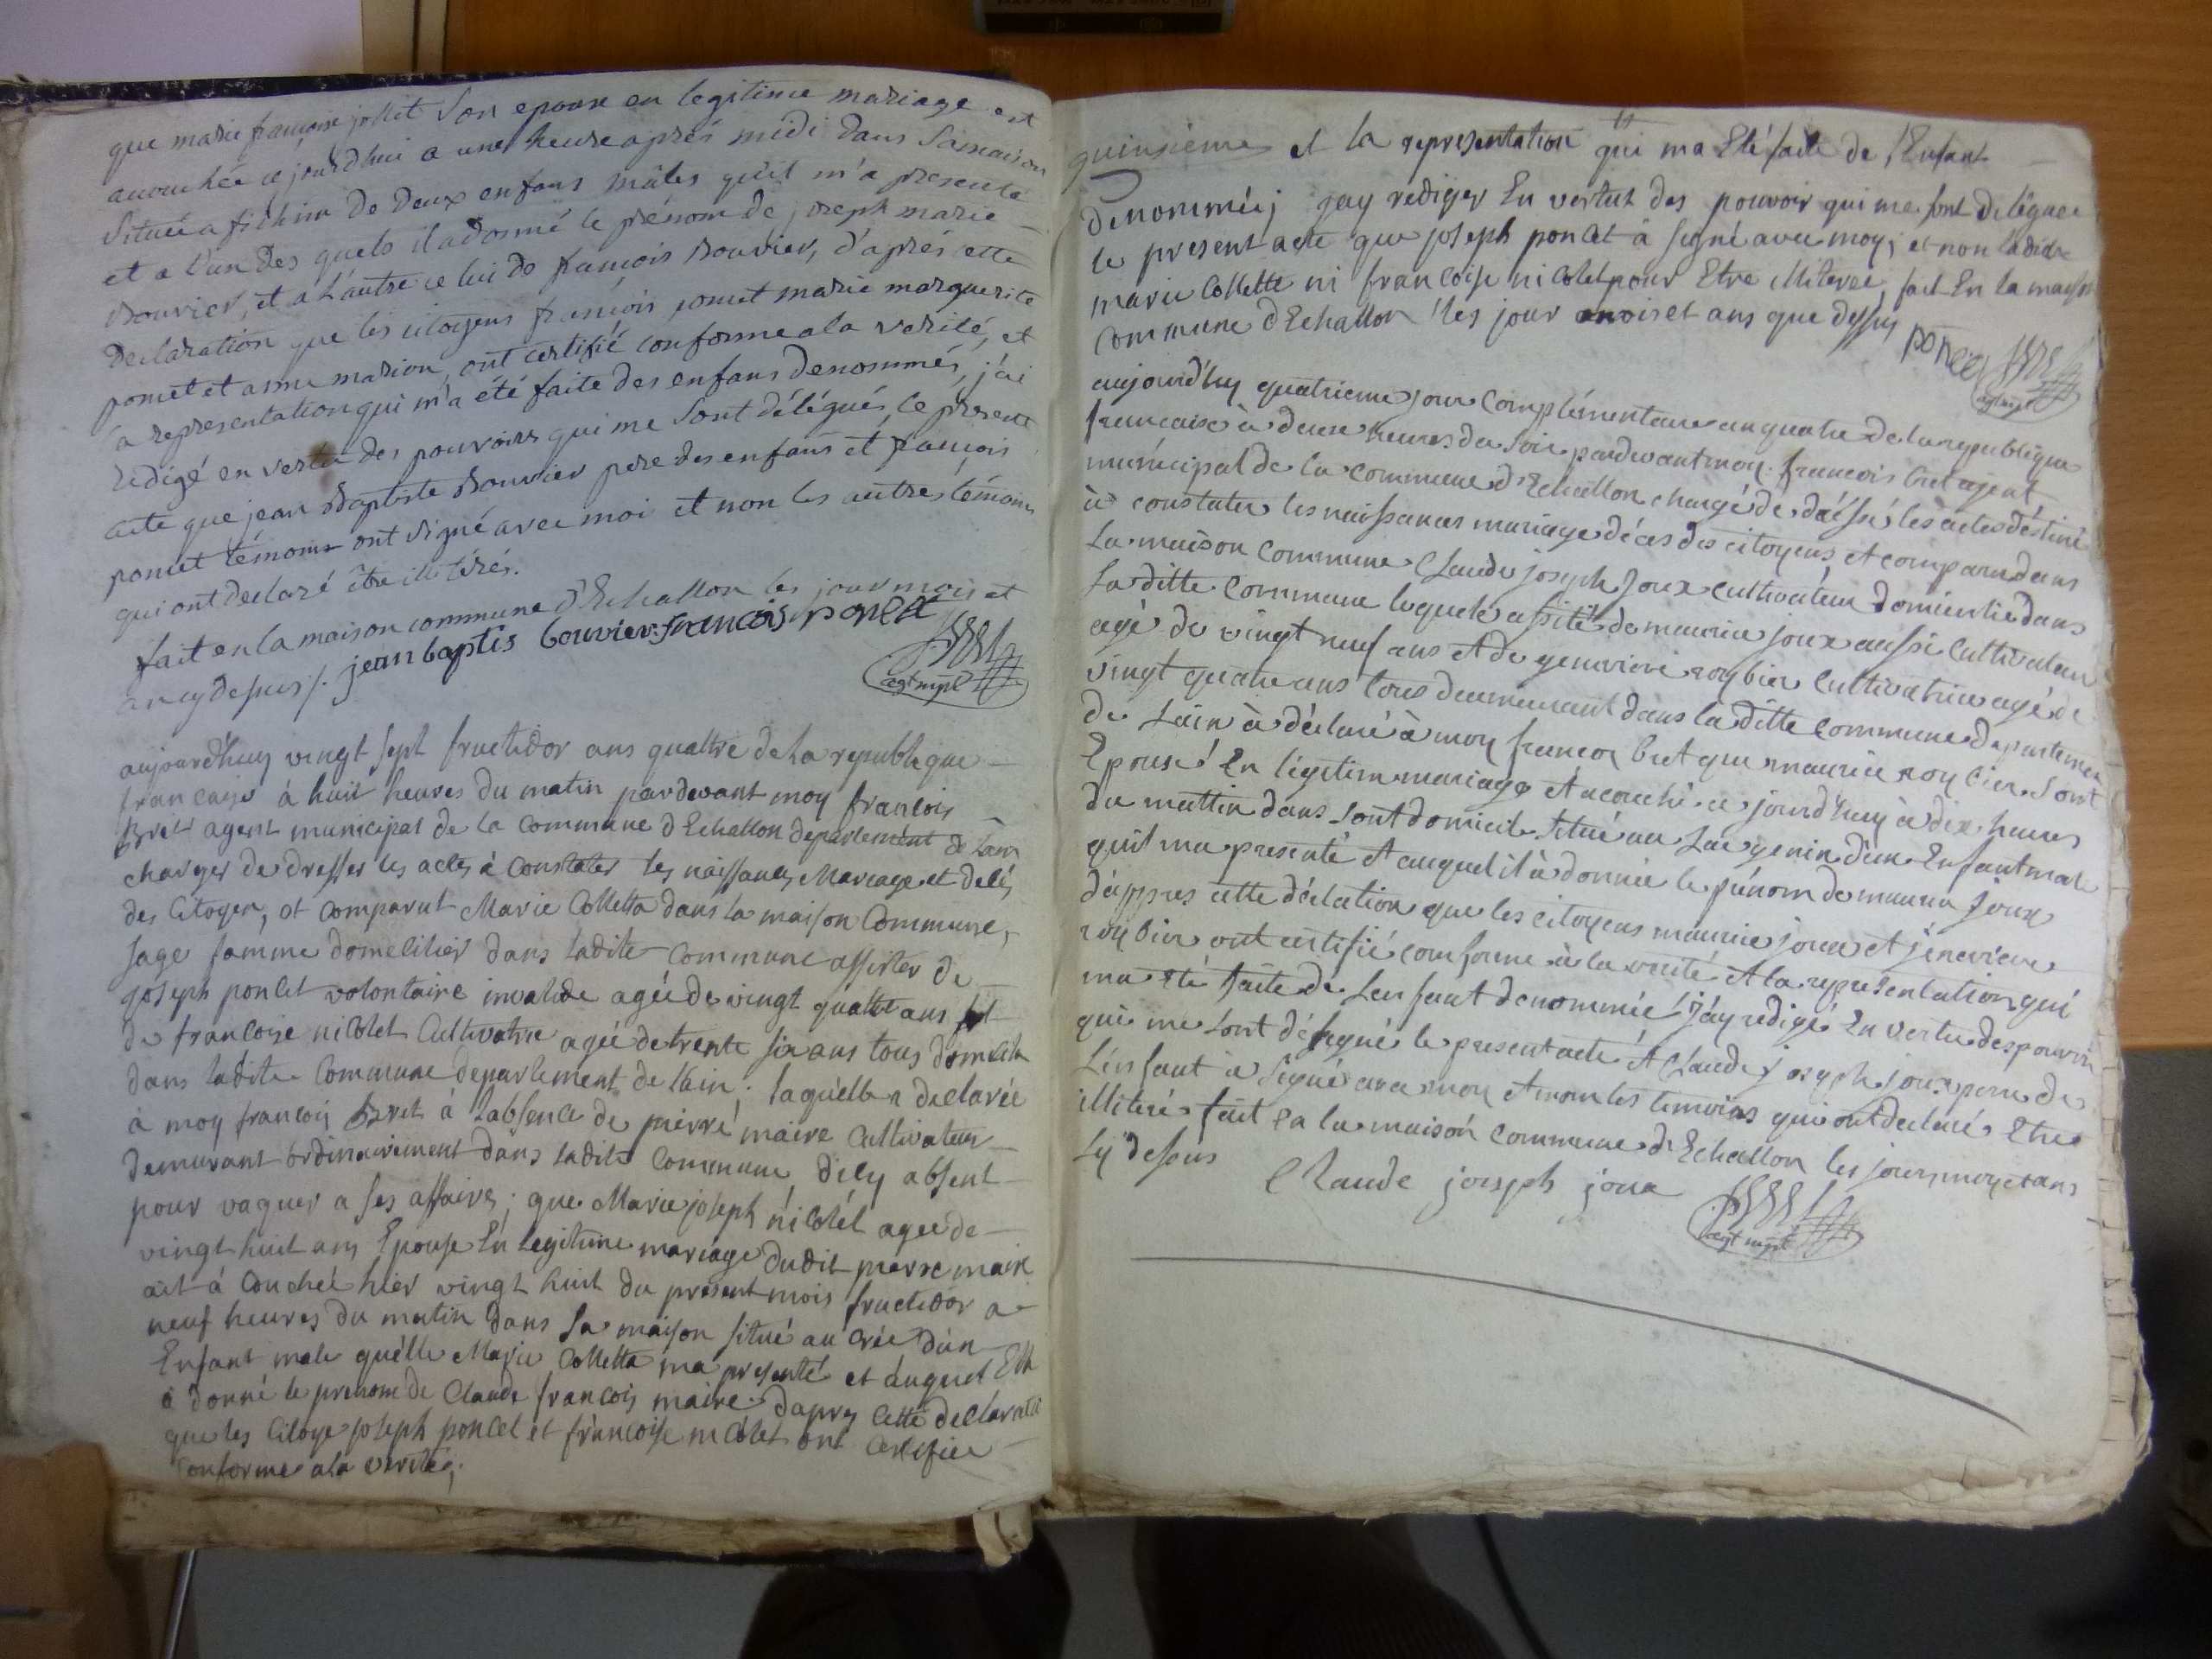 que marie francoise jollet Son epouse en legitime mariage est
accouchée ce jourd'hui a une heure après midi dans Samaison
Située a fichin de deux enfans mâles qu'il m'a presenté
et a l'un des quels il a donné le prénom de joseph marie
Bouvier, et a l'autre ce lui de francois Bouvier, d'après cette
declaration que les citoyens francois poncet marie marguerite
poncet et anne marion, ont certifié conforme a la verité, et
la representation qui m'a été faite des enfans denommés, j'ai
redigé en vertu des pouvoirs qui me Sont délégués, le present
acte que jean Baptiste Bouvier pere des enfans et francois
poncet témoins ont signé avec moi et non les autres témoins
qui ont declaré être illitérés.
fait en la maison commune d'Echallon les jour mois et
an cy dessus /. jean baptis bouvier francois poncet
agt mpl
aujourdhuy vingt sept fructidor ans quattre de la republique
francaise à huit heures du matin pardevant moy francois
Bret agent municipal de la commune d'Echallon departement de Lain
charger de dresser les actes à constater les naissances Mariage et decés
des Citoyen, et comparut Marie Colletta dans la maison Commune,
Sage famme domecilier dans ladite commune assister de
Joseph poncet volontaire invalide agée de vingt quatre ans et
de francoise nicolet Cultivatrice agée de trente six ans tous domecilié
dans ladite Commune departement de Lain; laquelle a declarée
à moy francois Bret à labsence de pierre maire Cultivateur
demurant ordinairement dans ladite Commune, dicy absent
pour vaquer a ses affaires; que Marie joseph nicolet agee de
vingt huit ans Epouse En Legitime mariage dudit pierre maire
ait à couchée hier vingt huit du present mois fructidor a
neuf heures du matin dans Sa maison situé au crée d'un
Enfant male quelle Marie Colletta ma presenté et auquel Elle
a donné le prenom de Claude francois maire. dapres cette declaration
que les Citoye joseph poncet et francoise nicolet ont certifiée
Conforme a la verité;
quinsieme et la representation qui ma Eté faite de l'Enfant
denommée; jay rediger En vertut des pouvoir qui me sont deléguee
le present acte que joseph poncet à signé avec moy; et non ladite
marie Collette ni francoise nicolet pour Etre illiteree, fait En la maison
commune dEchallon les jour mois et ans que dessus
poncet
agt mpl
aujourd'huy quatrieme jour complémentaire an quatre de la republique
francaise à deux heures du soir pardevant moy francois bret agent
municipal de la commune d'Echallon chargé de dréssé les actes déstiné
à constater les naissances mariage décès des citoyens et comparu dans
La maison commune Claude joseph Joux cultivateur domicilié dans
La ditte commune lequel assité de maurice joux aussi cultivateur
agé de vingt neuf ans et de genevieve roybier cultivatrice agé de
vingt quatre ans tous deumeurant dans la ditte commune departement
de Lain à déclaré à moy francois bret que maurice roybier sont
Epouse En légitime mariage et acouché ce jourd'huy à dix heures
du mattin dans sont domicile Situé au Lac genin d'un Enfant male
quil ma presenté et auquel il à donnée le prénom de maurice Joux
d'appres cette déclartion que les citoyens maurice joux et jenevieve
roybier ont certifié conforme à la verité et la representation qui
ma été faite de Lenfant denommée j'ay redigé En vertu des pouvoir
qui me sont délegué le present acte et Claude joseph joux pere de
Lenfant à signé avec moy et non les temoins qui ont declaré Etre
illiteré fait En la maison commune d'Echallon les jour moy et ans
Cy dessus
Claude joseph joux
agt mpl